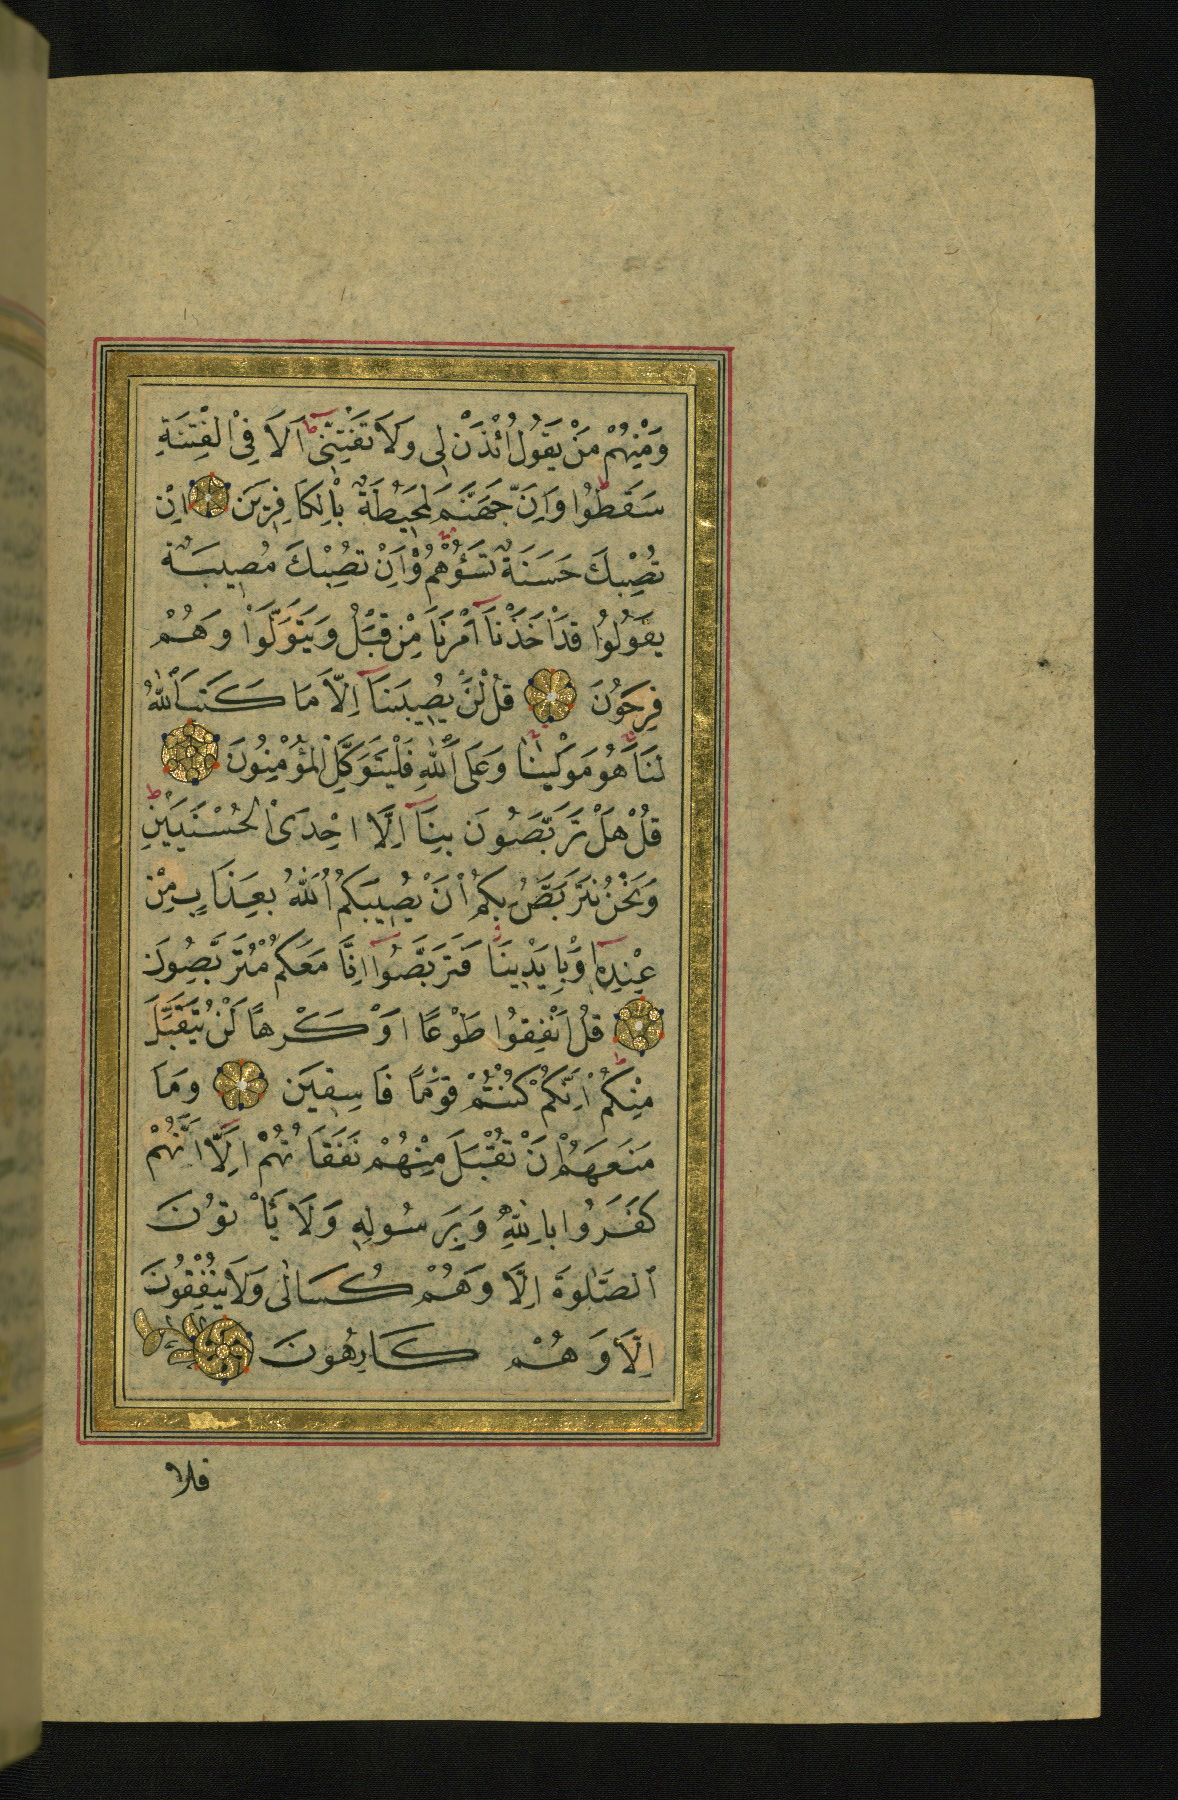 وَمِنْهُمْ مَنْ يَقُولُ ائْذَنْ لِى وَلَا تَفْتِنِّى اَلَا فِى الْفِتْنَةِ
سَقَطُوا وَاِنَّ جَهَنَّمَ لَمُحِيطَةٌ بِالْكَافِرِينَ اِنْ
تُصِبْكَ حَسَنَةٌ تَسُؤْهُمْ وَاِنْ تُصِبْكَ مُصِيبَةٌ
يَقُولُوا قَدْ اَخَذْنَا اَمْرَنَا مِنْ قَبْلُ وَيَتَوَلَّوْا وَهُمْ
فَرِحُونَ قُلْ لَنْ يُصِيبَنَا اِلَّا مَا كَتَبَ اللّٰهُ
لَنَا هُوَ مَوْلٰينَا وَعَلَى اللّٰهِ فَلْيَتَوَكَّلِ الْمُؤْمِنُونَ
قُلْ هَلْ تَرَبَّصُونَ بِنَا اِلَّا اِحْدَى الْحُسْنَيَيْنِ
وَنَحْنُ نَتَرَبَّصُ بِكُمْ اَنْ يُصِيبَكُمُ اللّٰهُ بِعَذَابٍ مِنْ
عِنْدِهِ اَوْ بِاَيْدِينَا فَتَرَبَّصُوا اِنَّا مَعَكُمْ مُتَرَبِّصُونَ
قُلْ اَنْفِقُوا طَوْعًا اَوْ كَرْهًا لَنْ يُتَقَبَّلَ
مِنْكُمْ اِنَّكُمْ كُنْتُمْ قَوْمًا فَاسِقِينَ وَمَا
مَنَعَهُمْ اَنْ تُقْبَلَ مِنْهُمْ نَفَقَاتُهُمْ اِلَّا اَنَّهُمْ
كَفَرُوا بِاللّٰهِ وَبِرَسُولِهِ وَلَا يَأْتُونَ
الصَّلٰوةَ اِلَّا وَهُمْ كُسَالٰى وَلَا يُنْفِقُونَ
اِلَّا وَهُمْ كَارِهُونَ
فلا